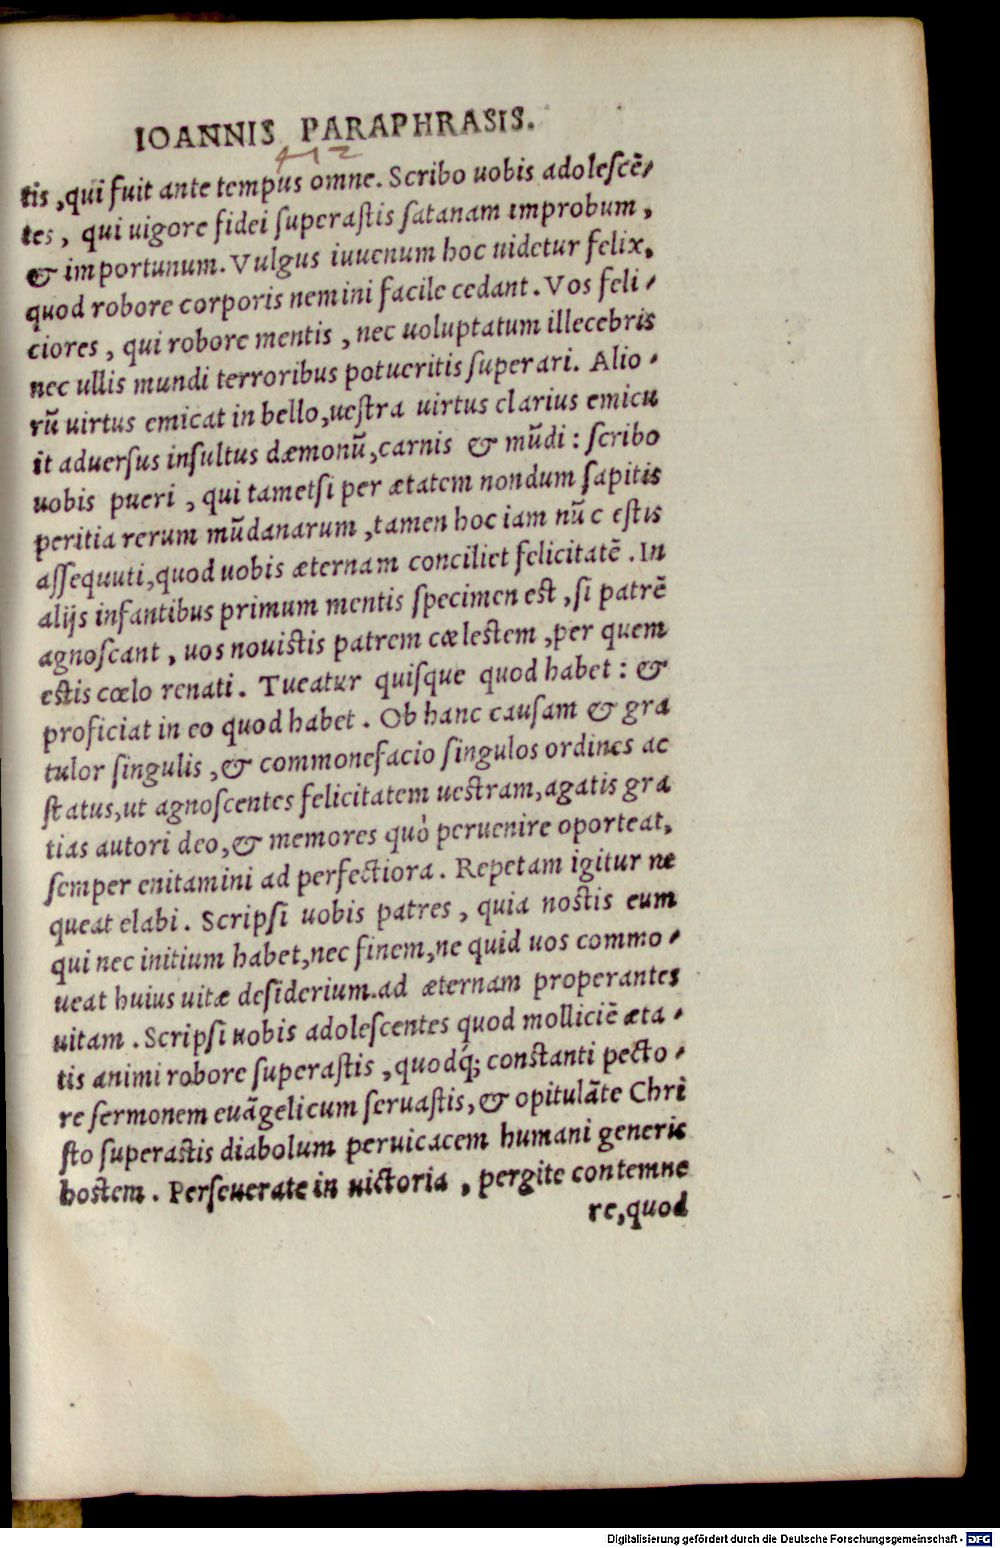 IOANNIS PARAPHRASIS.
412
tis, qui fuit ante tempus omne. Scribo uobis adolescē-
tes, qui uigore fidei superastis satanam improbum,
& importunum. Vulgus iuuenum hoc uidetur felix,
quod robore corporis nemini facile cedant. Vos feli-
ciores, qui robore mentis, nec uoluptatum illecebris
nec ullis mundi terroribus potueritis superari. Alio-
rū uirtus emicat in bello, uestra uirtus clarius emicu
it aduersus insultus dæmonū, carnis & mūdi: scribo
uobis pueri, qui tametsi per ætatem nondum sapitis
peritia rerum mūdanarum, tamen hoc iam nūc estis
assequuti, quod uobis æternam conciliet felicitatē. In
alijs infantibus primum mentis specimen est, si patrē
agnoscant, uos nouistis patrem cœlestem, per quem
estis cœlo renati. Tueatur quisque quod habet: &
proficiat in eo quod habet. Ob hanc causam & gra
tulor singulis, & commonefacio singulos ordines ac
status, ut agnoscentes felicitatem uestram, agatis gra
tias autori deo, & memores quò peruenire oporteat,
semper enitamini ad perfectiora. Repetam igitur ne
queat elabi. Scripsi uobis patres, quia nostis eum
qui nec initium habet, nec finem, ne quid uos commo-
ueat huius uitæ desiderium. ad æternam properantes
uitam. Scripsi uobis adolescentes quod molliciē æta-
tis animi robore superastis, quodq́; constanti pecto-
re sermonem euāgelicum seruastis, & opitulāte Chri
sto superastis diabolum peruicacem humani generis
hostem. Perseuerate in uictoria, pergite contemne
re, quod
Digitalisierung gefördert durch die Deutsche Forschungsgemeinschaft - DFG